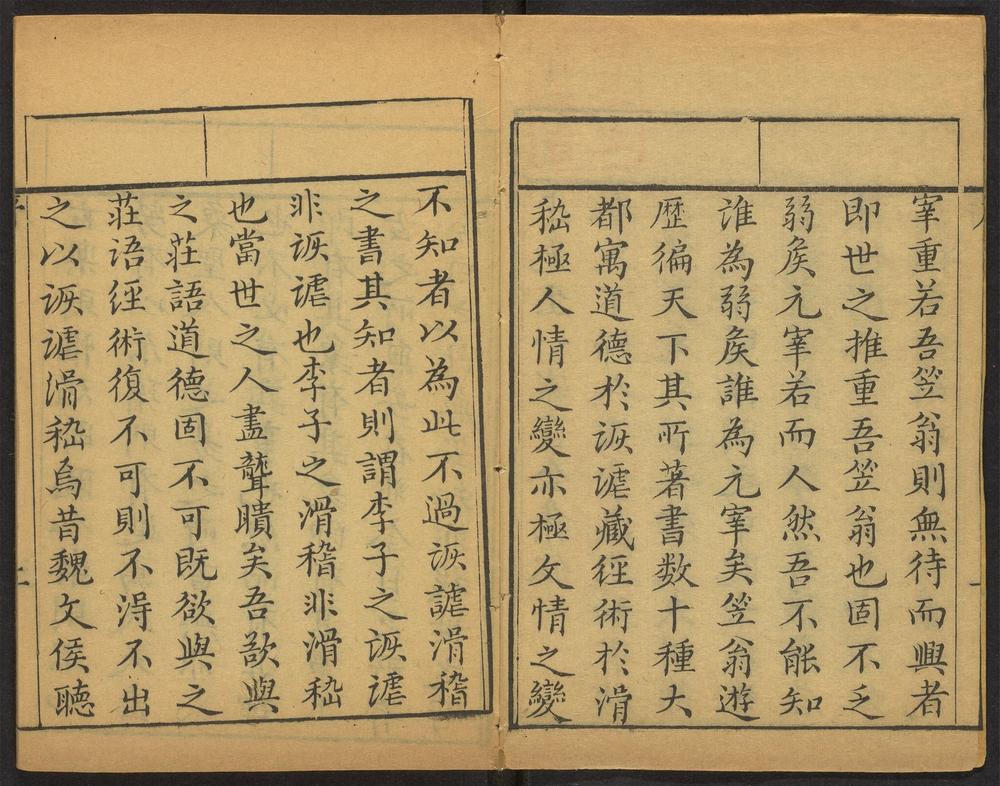 宰重若吾笠翁則無待而興者
即世之推重吾笠翁也固不乏
弱矦元宰若而人然吾不能知
誰為弱矦誰為元宰矣笠翁遊
歷徧天下其所著書数十種大
都寓道德於詼謔藏經術於滑
嵇極人情之變亦極文情之變
不知者以為此不過詼謔滑稽
之書其知者則謂李子之詼謔
非詼謔也李子之滑稽非滑嵇
也當世之人盡聾瞶矣吾欲與
之莊語道德固不可既欲與之
莊語經術復不可則不淂不出
之以詼謔滑嵇焉昔魏文侯聽